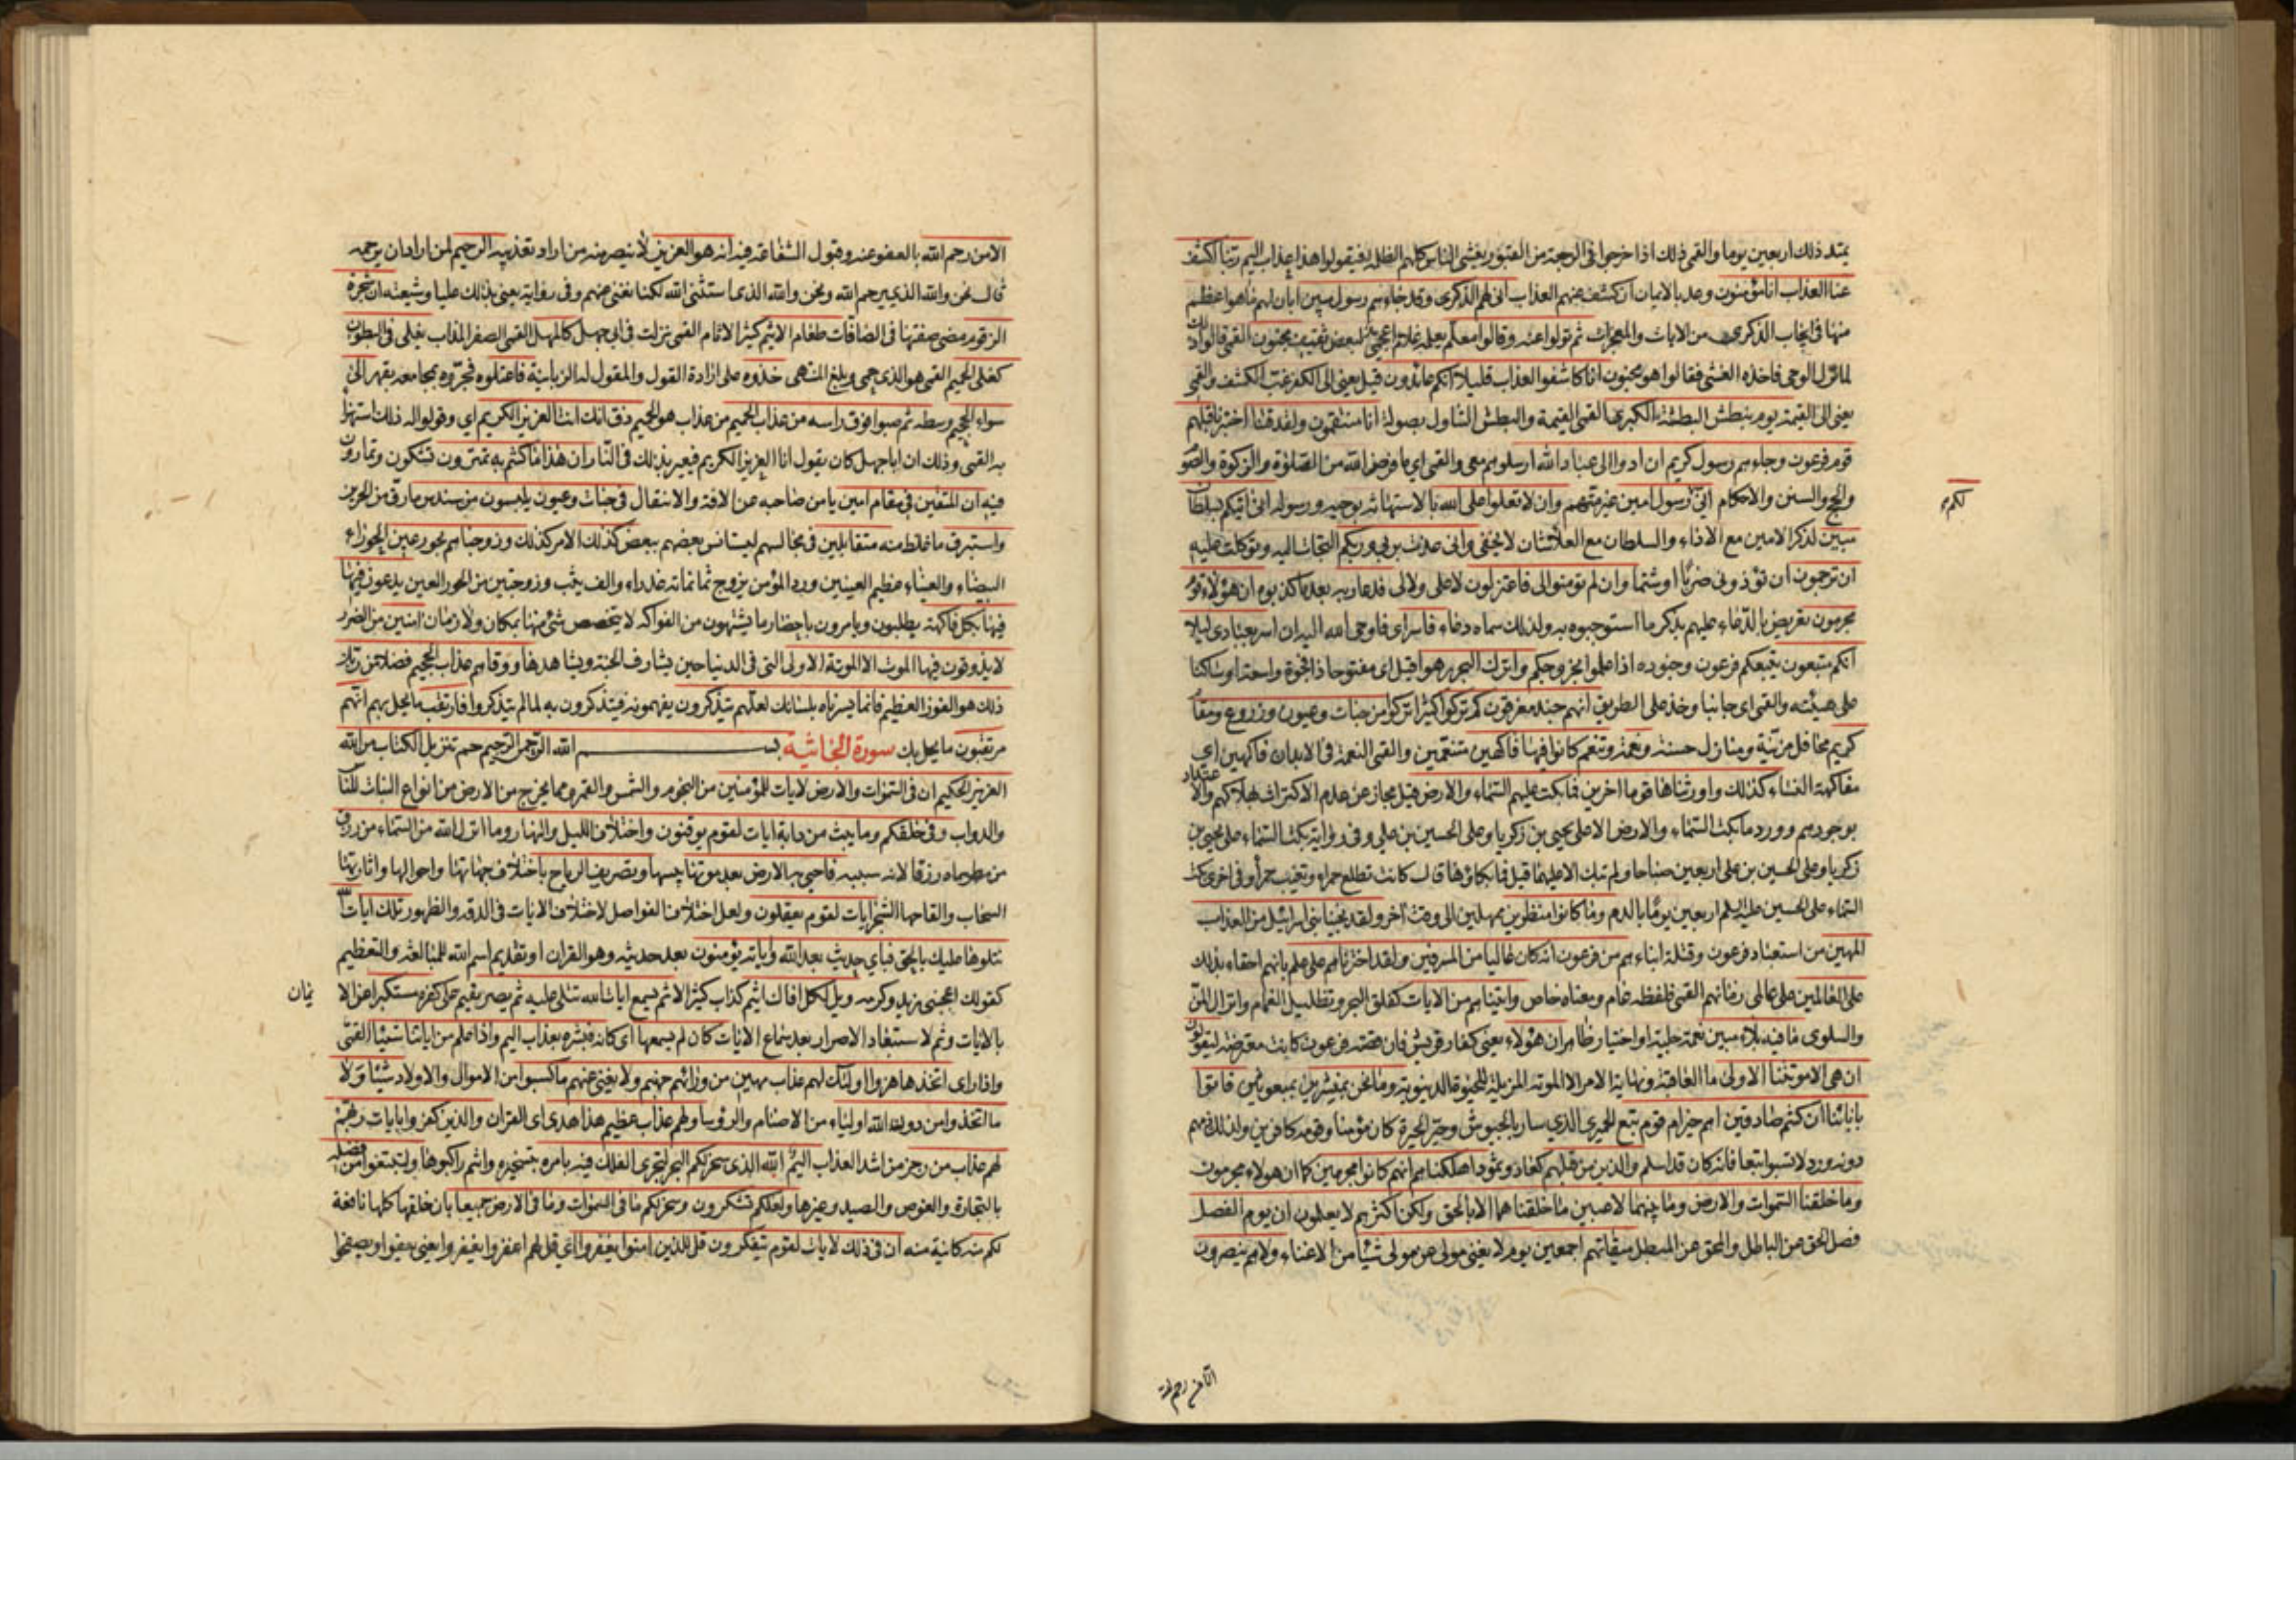 يمتد ذلك اربعين يوما والقمي ذلك اذا خرجوا في الرجعة من القبور يغشى الناس كلهم الظلمة فيقولوا هذا عذاب اليم ربنا اكشف
عنا العذاب انا مؤمنون وعد بالايمان ان كشف عنهم العذاب انى لهم الذكرى وقد جاءهم رسول مبين ابان لهم ما هو اعظم
منها في ايجاب الذكرى من الايات والمعجزات ثم تولوا عنه وقالوا معلم يعلمه غلام اعجمي لبعض ثقيف مجنون القمي قالوا ذلك
لما نزل الوحي فاخذه الغشي فقالوا هو مجنون انا كاشفوا العذاب قليلا انكم عائدون قيل يعني الى الكفر غب الكشف والقمي
يعني الى القيمة يوم نبطش البطشة الكبرى القمي القيمة والبطش التناول بصولة انا منتقمون ولقد فتنا اختبرنا قبلهم
قوم فرعون وجاءهم رسول كريم ان ادوا الي عباد الله ارسلوهم معي والقمي اي ما فرض الله من الصلوة والزكوة والصوم
والحج والسنن والاحكام اني لكم رسول امين غير متهم وان لا تعلوا على الله بالاستهانة بوحيه ورسوله اني اتيكم بسلطان
مبين لذكر الامين مع الاداء والسلطان مع العلا شان لا يخفى واني عذت بربي وربكم التجأت اليه وتوكلت عليه
ان ترجمون ان تؤذوني ضربا او شتما وان لم تؤمنوا لي فاعتزلون لا علي ولا لي فدعا ربه بعد ما كذبوه ان هؤلاء قوم
مجرمون تعريض بالدعاء عليهم بذكر ما استوجبوه به ولذلك سماه دعاء فاسر اي فاوحى الله اليه ان اسر بعبادي ليلا
انكم متبعون يتبعكم فرعون وجنوده اذا علموا بخروجكم واترك البحر رهوا قيل اي مفتوحا ذا فجوة واسعة او ساكنا
على هيئته والقمي اي جانبا وخذ على الطريق انهم جند مغرقون كم تركوا كثيرا تركوا من جنات وعيون وزروع ومقام
كريم محافل مزينة ومنازل حسنة ونعمة وتنعم كانوا فيها فاكهين متنعمين والقمي النعمة في الابدان فاكهين اي
مفاكهة النساء كذلك واورثناها قوما اخرين فما بكت عليهم السماء والارض قيل مجاز عن عدم الاكتراث بهلاكهم والاعتداد
بوجودهم وورد ما بكت السماء والارض الا على يحيى بن زكريا وعلى الحسين بن علي وفي رواية بكت السماء على يحيى بن
زكريا وعلى الحسين بن علي اربعين صباحا ولم تبك الا عليهما قيل فما بكاؤها قال كانت تطلع حمراء وتغيب حمراء وفي اخرى بكت
السماء على الحسين عليه السلم اربعين يوما بالدم وما كانوا منظرين ممهلين الى وقت اخر ولقد نجينا بني اسرائيل من العذاب
المهين من استعباد فرعون وقتله ابناءهم من فرعون انه كان عاليا من المسرفين ولقد اخترناهم على علم بانهم احقاء بذلك
على العالمين على عالمي زمانهم القمي فلفظه عام ومعناه خاص واتيناهم من الايات كفلق البحر وتظليل الغمام وانزال المن
والسلوى ما فيه بلاء مبين نعمة جلية او اختيار ظاهر ان هؤلاء يعني كفار قريش فان قصة فرعون كانت معترضة ليقولون
ان هي الا موتتنا الاولى ما العاقبة ونهاية الامر الا الموتة المزيلة للحيوة الدنيوية وما نحن بمنشرين بمبعوثين فاتوا
بابائنا ان كنتم صادقين اهم خير ام قوم تبع الحميري الذي سار بالجيوش وحير الحيرة كان مؤمنا وقومه كافرين ولذلك ذمهم
دونه وورد لا تسبوا تبعا فانه كان قد اسلم والذين من قبلهم كعاد وثمود اهلكناهم انهم كانوا مجرمين كما ان هولاء مجرمون
وما خلقنا السموات والارض وما بينهما لاعبين ما خلقناهما الا بالحق ولكن اكثرهم لا يعلمون ان يوم الفصل
فصل الحق عن الباطل والمحق عن المبطل ميقاتهم اجمعين يوم لا يغني مولى عن مولى شيئا من الاغناء ولا هم ينصرون
الا من رحم الله
الا من رحم الله بالعفو عنه وقبول الشفاعة فيه انه هو العزيز لا ينصر منه من اراد تعذيبه الرحيم لمن اراد ان يرحمه
قال نحن والله الذي يرحم الله ونحن والله الذي استثنى الله لكنا نغني عنهم وفي رواية يعني بذلك عليا وشيعته ان شجرة
الزقوم مضى صفتها في الصافات طعام الاثيم كثير الاثام القمي نزلت في ابي جهل كالمهل القمي الصفر المذاب يغلي في البطون
كغلي الحميم القمي هو الذي حمي وبلغ المنتهى خذوه على ارادة القول والمقول له الزبانية فاعتلوه فجروه بمجامعه بقهر الى
سواء الجحيم وسطه ثم صبوا فوق راسه من عذاب الحميم من عذاب هو الحميم ذق انك انت العزيز الكريم اي وقولوا له ذلك استهزاء
به القمي وذلك ان ابا جهل كان يقول انا العزيز الكريم فيعير بذلك في النار ان هذا ما كنتم به تمترون تشكون وتمارون
فيه ان المتقين في مقام امين يامن صاحبه عن الافة والانتقال في جنات وعيون يلبسون من سندس ما رق من الحرير
واستبرق ما غلظ منه متقابلين في مجالسهم ليستانس بعضهم ببعض كذلك الامر كذلك وزوجناهم بحور عين الحوراء
البيضاء والعيناء عظيم العينين وورد المؤمن يزوج ثمانمائة عذراء والف ثيب وزوجتين من الحور العين يدعون فيها
فيها بكل فاكهة يطلبون ويامرون باحضار ما يشتهون من الفواكه لا يتخصص شئ منها بمكان ولا زمان امنين من الضرر
لا يذوقون فيها الموت الا الموتة الاولى التي في الدنيا حين يشارف الجنة ويشاهدها ووقاهم عذاب الجحيم فضلا من ربك
ذلك هو الفوز العظيم فانما يسرناه بلسانك لعلهم يتذكرون يفهمونه فيتذكرون به لما لم يتذكروا فارتقب ما يحل بهم انهم
مرتقبون ما يحل بك سورة الجاثية بسم الله الرحمن الرحيم حم تنزيل الكتاب من الله
العزيز الحكيم ان في السموات والارض لايات للمؤمنين من النجوم والشمس والقمر ومما يخرج من الارض من انواع النبات للناس
والدواب وفي خلقكم وما يبث من دابة ايات لقوم يوقنون واختلاف الليل والنهار وما انزل الله من السماء من رزق
من مطر وماه رزقا لانه سببه فاحيى به الارض بعد موتها يبسها وتصريف الرياح باختلاف جهاتها واحوالها واثارتها
السحاب والقاحها الشجر ايات لقوم يعقلون ولعل اختلاف الفواصل لاختلاف الايات في الدقة والظهور تلك ايات الله
نتلوها عليك بالحق فباي حديث بعد الله واياته يؤمنون بعد حديثه وهو القران او تقديم اسم الله للمبالغة والتعظيم
كقولك اعجبني زيد وكرمه ويل لكل افاك اثيم كذاب كثير الاثم يسمع ايات الله تتلى عليه ثم يصر يقيم على كفره مستكبرا عن الايمان
بالايات وثم لاستبعاد الاصرار بعد سماع الايات كان لم يسمعها اي كانه فبشره بعذاب اليم واذا علم من اياتنا شيئا القمي
واذا راى اتخذها هزوا اولئك لهم عذاب مهين من ورائهم جهنم ولا يغني عنهم ما كسبوا من الاموال والاولاد شيئا ولا
ما اتخذوا من دون الله اولياء من الاصنام والرؤسا ولهم عذاب عظيم هذا هدى اي القران والذين كفروا بايات ربهم
لهم عذاب من رجز من اشد العذاب اليم الله الذي سخر لكم البحر لتجري الفلك فيه بامره بتسخيره وانتم راكبوها ولتبتغوا من فضله
بالتجارة والغوص والصيد وغيرها ولعلكم تشكرون وسخر لكم ما في السموات وما في الارض جميعا بان خلقها كلها نافعة
لكم منه كائنة منه ان في ذلك لايات لقوم يتفكرون قل للذين امنوا يغفروا اي قل لهم اغفروا يغفروا يعني يعفوا ويصفحوا